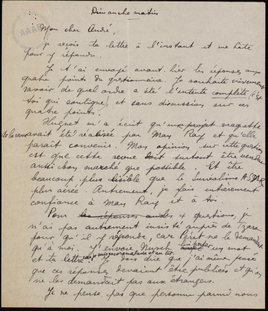 Dimanche matin
Mon cher André,
je reçois ta lettre à l'instant et me hâte
d'y répondre.
Je t'ai envoyé avant hier les réponses aux
quatre points du questionnaire. Je souhaite vivement
savoir de quel ordre a été l'entente complète,
toi qui souligne, et sans discussion sur ces
quatre points.
m'a écrit qu'un projet magnifique
avait été réalisé par Man Ray et qu'elle
parait convenir. Mon opinion, sur cette question
est que cette doit surtout être vendue
aussi bon marché que possible. Et être
beaucoup plus lisible que le
plus aéré. Autrement, je fais entièrement
confiance à Man Ray et à toi.
Pour les réponses aux 4 questions, je
n'ai pas autrement insisté auprès de
pour qu'il y réponde, car Péret ne le demande
qu'à moi. J'envoie Nusch un mot
et ta lettre. Je dois dire que j'ai même pensé
que ces réponses devaient être publiées et qu'on
ne les demandait pas aux étrangers.
Je ne pense pas que personne parmi nous